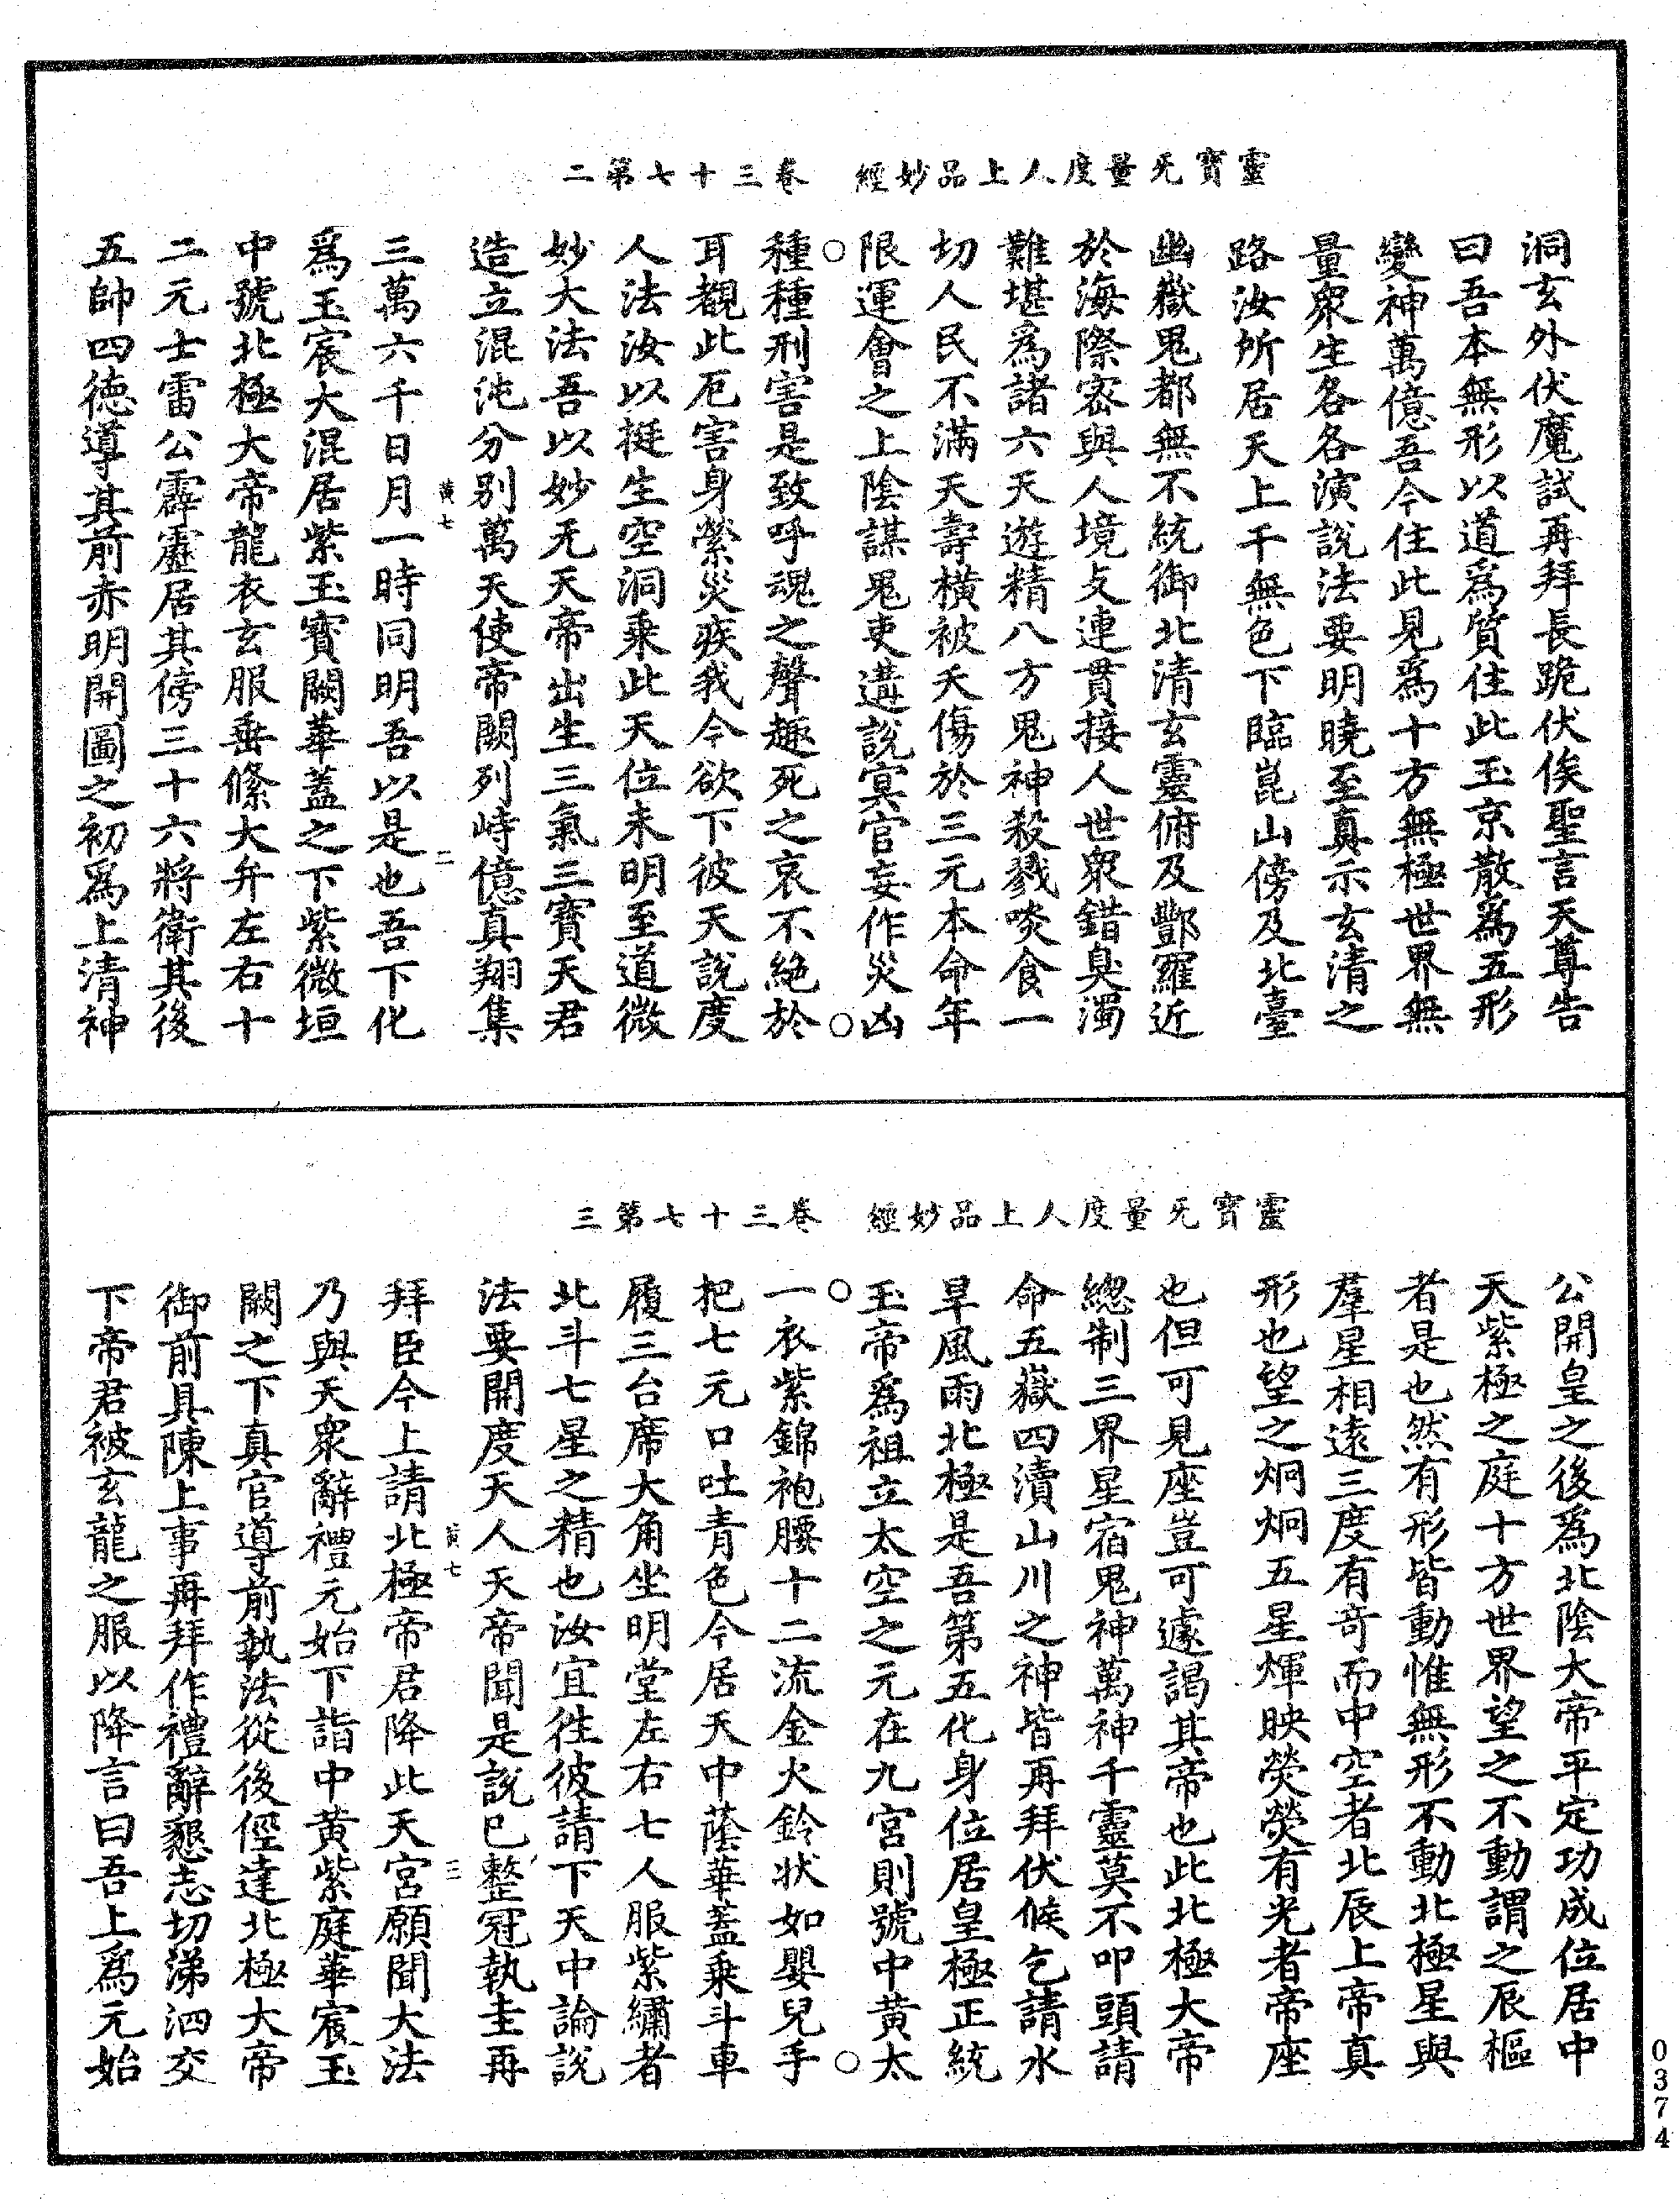 靈寶无量度人上品妙經　卷三十七第二
洞玄外伏魔試再拜長跪伏俟聖言天尊告
曰吾本無形以道爲質住此玉京散爲五形
變神萬億吾今住此見爲十方無極世界無
量衆生各各演說法要明曉至真示玄清之
路汝所居天上千無色下臨崑山傍及北臺
幽嶽鬼都無不統御北清玄靈俯及酆羅近
於海際密與人境攴連貫接人世衆錯臭濁
難堪爲諸六天遊精八方鬼神殺戮啖食一
切人民不滿天壽橫被夭傷於三元本命年
限運會之上陰謀鬼吏遘說冥官妄作災凶
種種刑害是致呼魂之聲趣死之哀不絶於
耳覩此厄害身縈災疾我今欲下彼天說度
人法汝以挺生空洞乗此天位未明至道微
妙大法吾以妙无天帝出生三氣三寶天君
造立混沌分别萬天使帝闕列峙億真翔集
黃七　二
三萬六千日月一時同明吾以是也吾下化
爲玉宸大混居紫玉寶闕華蓋之下紫微垣
中號北極大帝龍衣玄服垂絛大弁左右十
二元士雷公霹靂居其傍三十六將衛其後
五帥四德導其前赤明開圖之初爲上清神
靈寶无量度人上品妙經　卷三十七第三
公開皇之後爲北陰大帝平定功成位居中
天紫極之庭十方世界望之不動謂之辰樞
者是也然有形皆動惟無形不動北極星與
羣星相遠三度有竒而中空者北辰上帝真
形也望之炯炯五星煇映熒熒有光者帝座
也但可見座豈可遽謁其帝也此北極大帝
緫制三界星宿鬼神萬神千靈莫不叩頭請
命五嶽四瀆山川之神皆再拜伏候乞請水
旱風雨北極是吾第五化身位居皇極正統
玉帝爲祖立太空之元在九宮則號中黃太
一衣紫錦袍腰十二流金火鈴狀如嬰兒手
把七元口吐青色今居天中蔭華蓋乗斗車
履三台席大角坐明堂左右七人服紫繡者
北斗七星之精也汝宜徃彼請下天中論說
法要開度天人天帝聞是說已整冠執圭再
黃七　三
拜臣今上請北極帝君降此天宮願聞大法
乃與天衆辭禮元始下詣中黃紫庭華宸玉
闕之下真官導前執法從後徑達北極大帝
御前具陳上事再拜作禮辭懇志切涕泗交
下帝君被玄龍之服以降言曰吾上爲元始
0374